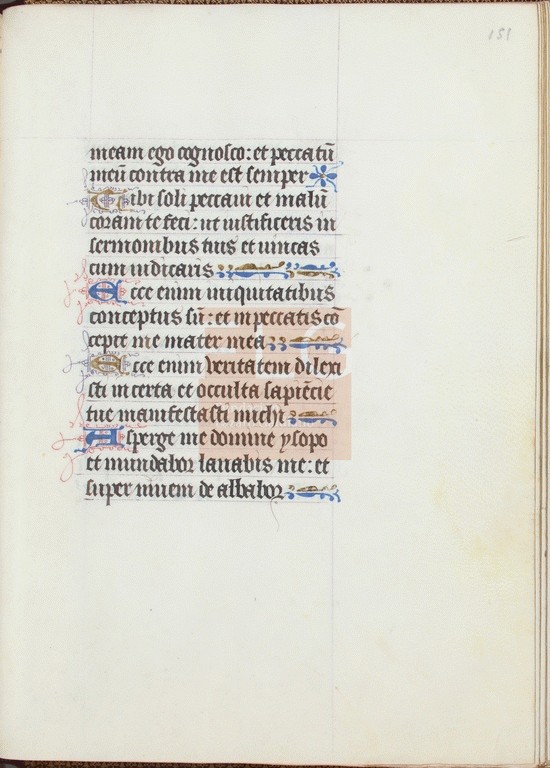 151
meam ego cognosco: et peccatū
meū contra me est semper
Tibi soli peccaui et malū
coram te feci: ut iustificeris in
sermonibus tuis et uincas
cum iudicaris
Ecce enim iniquitatibus
conceptus sū: et in peccatis cō
cepit me mater mea
Ecce enim veritatem dilexi
sti incerta et occulta sapiēcie
tue manifestasti michi
Asperge me domine ysopo
et mundabor lauabis me: et
super niuem de albabor